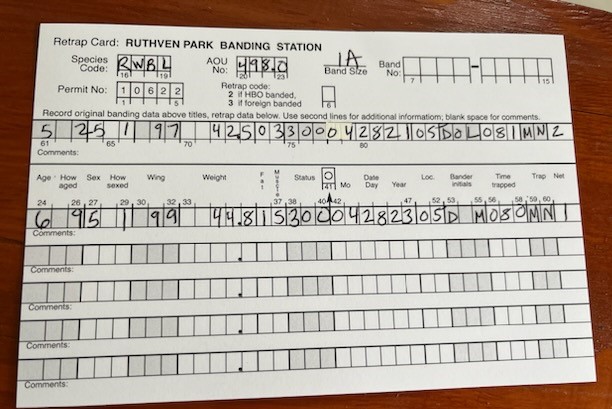 Retrap Card: RUTHVEN PARK BANDING STATION
Species Code: RWBL 16 19 AOU No: 498.0 20 23 1A Band Size Band No: - 7 15
Permit No: 10622 1 5 Retrap code: 2 if HBO banded, 3 if foreign banded 6
Record original banding data above titles, retrap data below. Use second lines for additional information; blank space for comments.
5 25 1 97 42.5 0 3 300 0 428 21 05 DOL 081 MN 2
61 65 70 75 80
Comments:
Age How aged Sex How sexed Wing Weight Fat Muscle Status 0 41 Mo Date Day Year Loc. Bander initials Time trapped Trap Net
24 26 27 29 30 32 33 37 38 40 42 47 52 53 55 56 58 59 60
6 95 1 99 44.8 1 5 300 0 428 23 05 D M 080 MN 1
Comments:
Comments:
Comments:
Comments:
Comments: